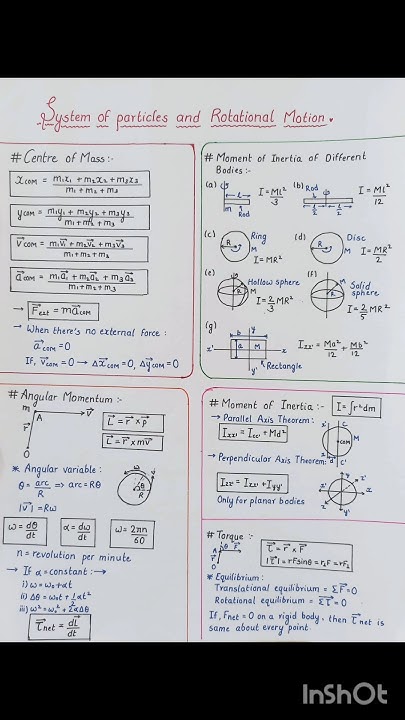 System of particles and Rotational Motion.
# Centre of Mass :-
xCOM = m1x1 + m2x2 + m3x3 / m1 + m2 + m3
yCOM = m1y1 + m2y2 + m3y3 / m1 + m2 + m3
V⃗COM = m1v⃗1 + m2v⃗2 + m3v⃗3 / m1 + m2 + m3
a⃗COM = m1a⃗1 + m2a⃗2 + m3a⃗3 / m1 + m2 + m3
→ F⃗ext = ma⃗COM
→ When there's no external force :
a⃗COM = 0
If, v⃗COM = 0 → Δx⃗COM = 0, Δy⃗COM = 0
# Moment of Inertia of Different
Bodies :-
(a) l m Rod I = Ml²/3
(b) Rod l/2 l/2 I = Ml²/12
(c) R Ring M I = MR²
(d) R Disc M I = MR²/2
(e) R Hollow sphere M I = 2/3 MR²
(f) R M Solid
sphere I = 2/5 MR²
(g) b y x' a M x y' Rectangle
Ixx' = Ma²/12 + Mb²/12
# Angular Momentum :-
m A V⃗ r⃗ O
L⃗ = r⃗ x p⃗
L⃗ = r⃗ x mv⃗
* Angular variable :
θ = arc/R ⇒ arc = Rθ
ω v θ R
|v⃗| = Rω
ω = dθ/dt
α = dω/dt
ω = 2πn/60
n = revolution per minute
→ If α = constant :→
i) ω = ω0 + αt
ii) Δθ = ω0t + 1/2 αt²
iii) ω² = ω0² + 2αΔθ
τ⃗net = dL⃗/dt
# Moment of Inertia :- I = ∫r²dm
→ Parallel Axis Theorem :
Ixx' = Icc' + Md²
x' C COM d C'
→ Perpendicular Axis Theorem :
Izz' = Ixx' + Iyy'
Only for planar bodies
# Torque :-
θ F⃗ A r⃗ O
τ⃗ = r⃗ x F⃗
|τ⃗| = rFsinθ = r⊥F = rF⊥
* Equilibrium :
Translational equilibrium = ΣF⃗ = 0
Rotational equilibrium = Στ⃗ = 0
If, Fnet = 0 on a rigid body, then τ⃗net is
same about every point.
InShOt